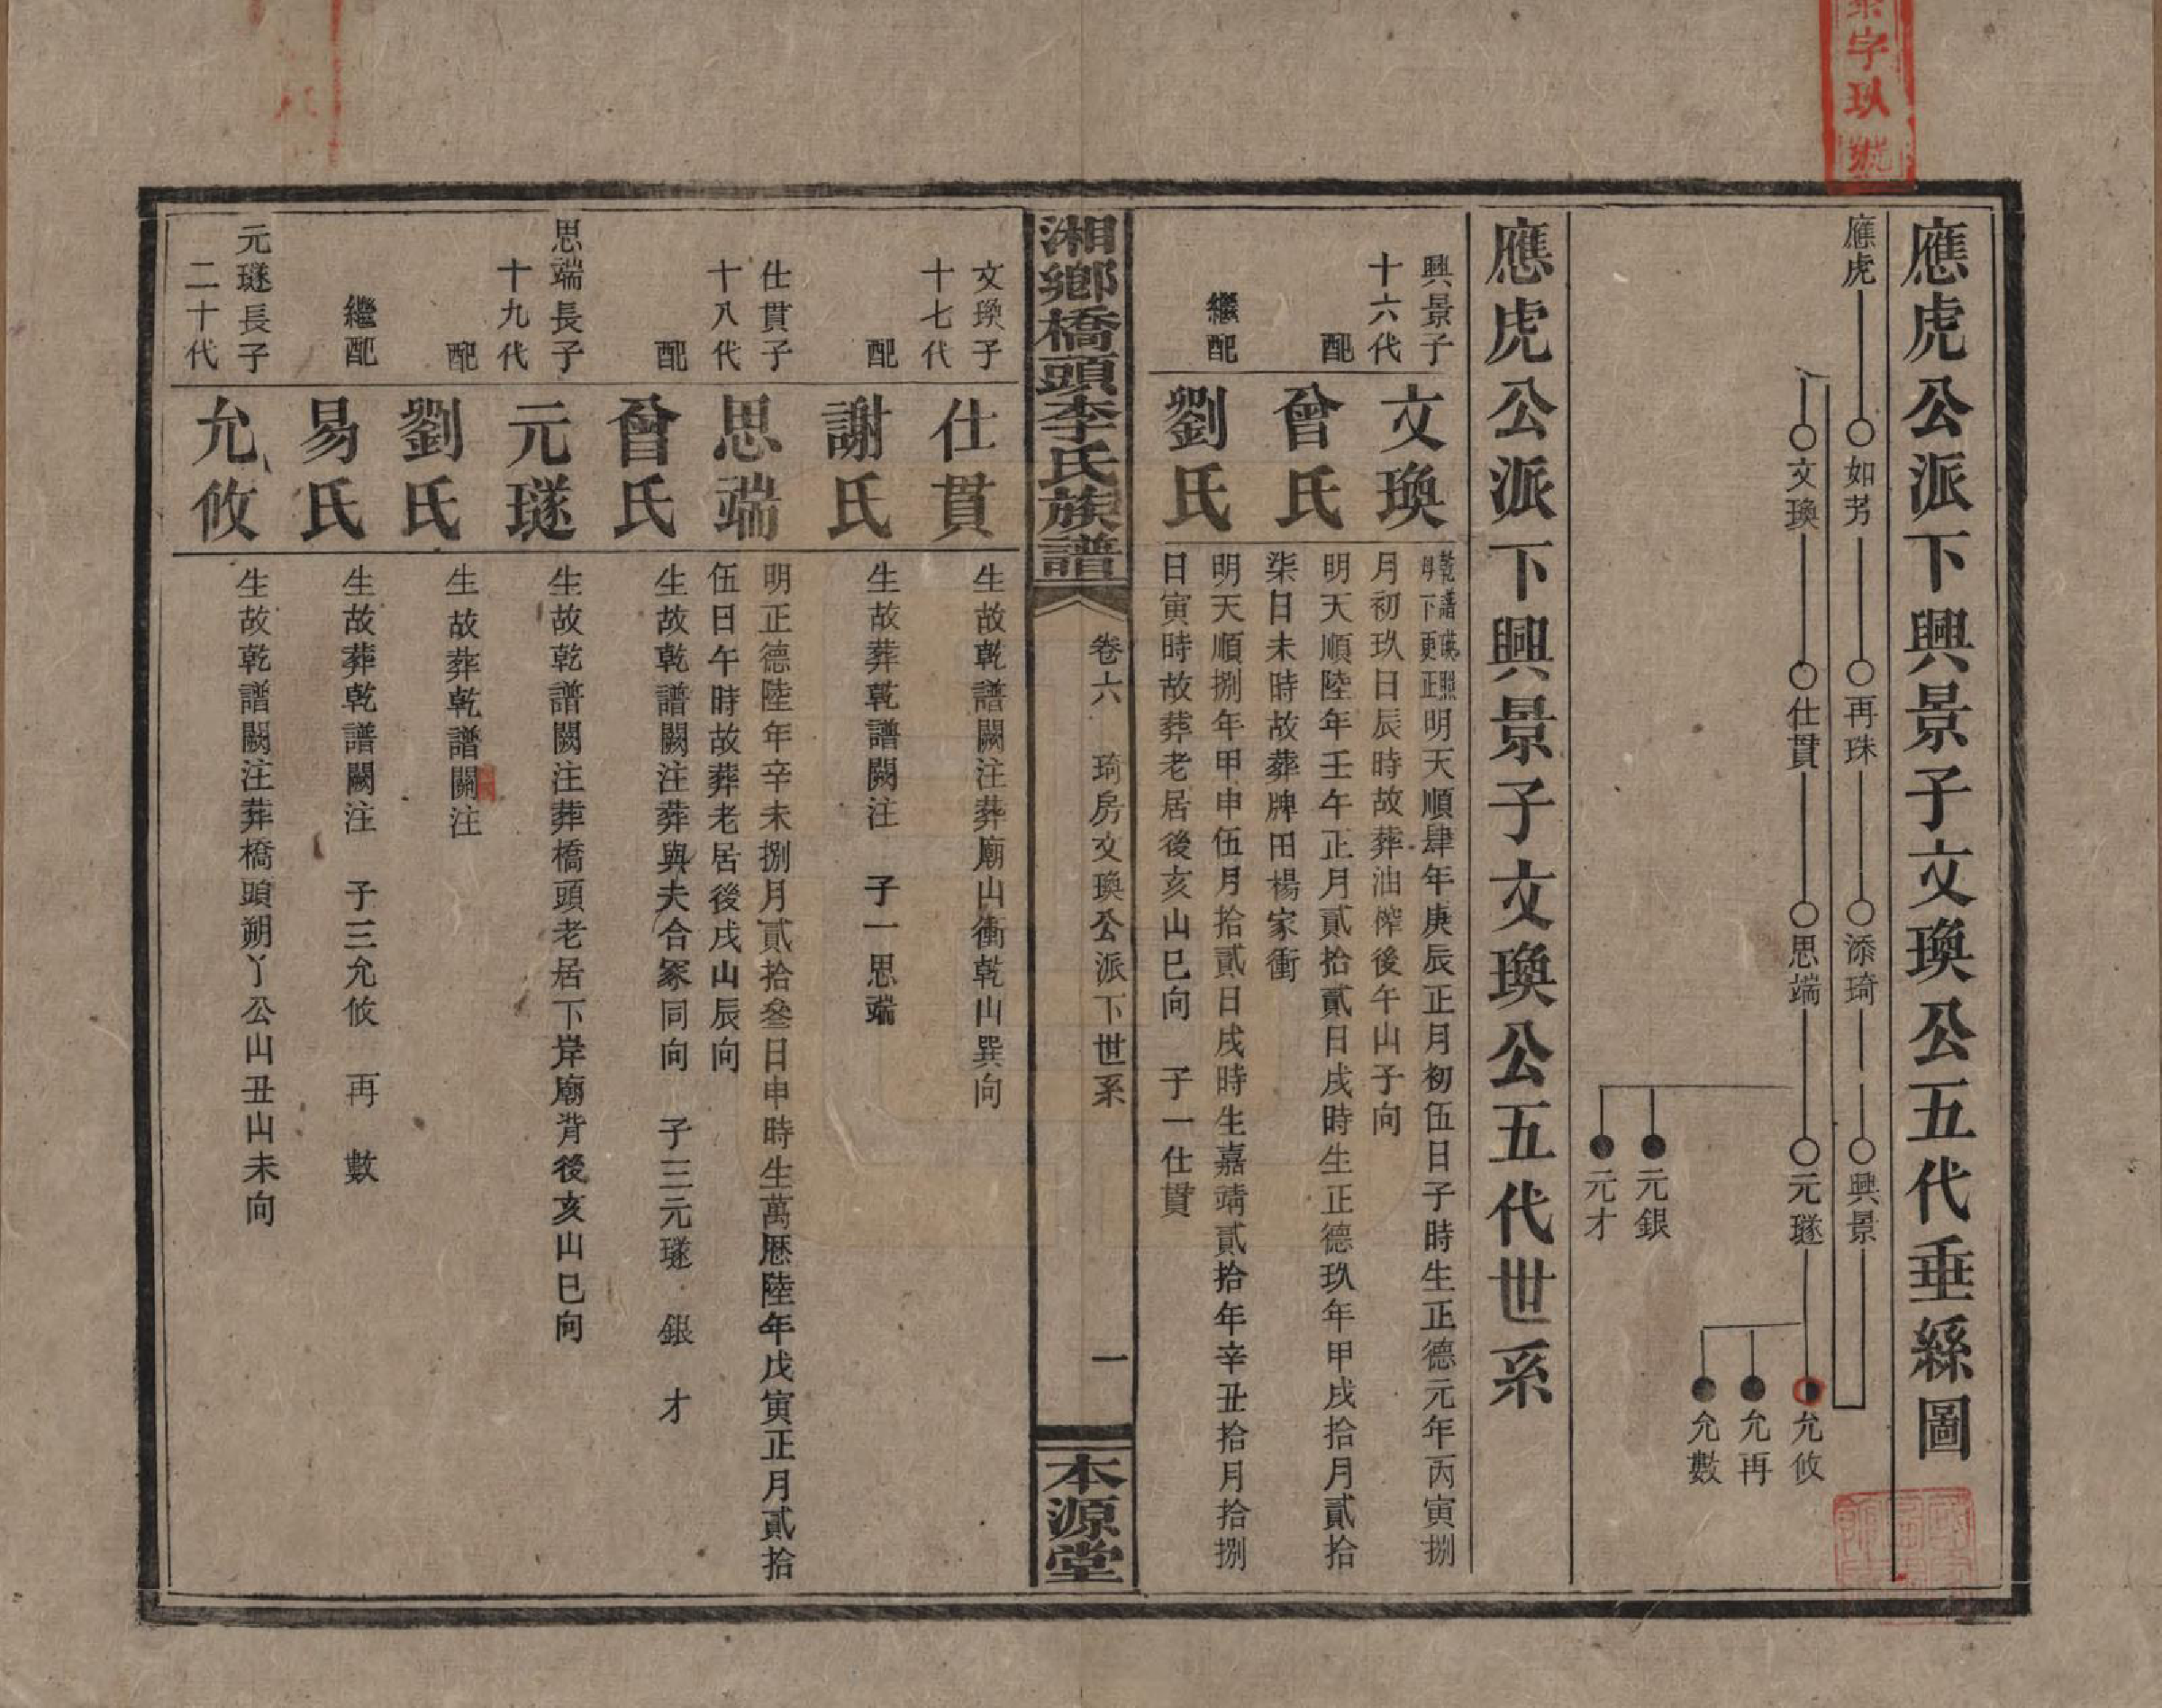 字玖號
應虎公派下興景子文瑍公五代垂絲圖
應虎
如芳
再珠
添琦
興景
文瑍
仕貫
思端
元璲
元銀
元才
允攸
允再
允數
應虎公派下興景子文瑍公五代世系
興景子
十六代
文瑍
乾譜
下更正照
明天順肆年庚辰正月初伍日子時生正德元年丙寅捌
月初玖日辰時故葬油榨後午山子向
配
曾氏
明天順陸年壬午正月貳拾貳日戌時生正德玖年甲戌拾月貳拾
柒日未時故葬牌田楊家衝
繼配
劉氏
明天順捌年甲申伍月拾貳日戌時生嘉靖貳拾年辛丑拾月拾捌
日寅時故葬老居後亥山巳向 子一仕貫
湘鄉橋頭李氏族譜
卷六 琦房文瑍公派下世系
一
本源堂
文瑍子
十七代
仕貫
生故乾譜闕注葬廟山衝乾山巽向
配
謝氏
生故葬乾譜闕注 子一思端
仕貫子
十八代
思端
明正德陸年辛未捌月貳拾叄日申時生萬厯陸年戊寅正月貳拾
伍日午時故葬老居後戌山辰向
配
曾氏
生故乾譜闕注葬與夫合冢同向 子三元璲 銀 才
思端長子
十九代
元璲
生故乾譜闕注葬橋頭老居下岸廟背後亥山巳向
配
劉氏
生故葬乾譜闕注
繼配
易氏
生故葬乾譜闕注 子三允攸 再 數
元璲長子
二十代
允攸
生故乾譜闕注葬橋頭朔丫公山丑山未向